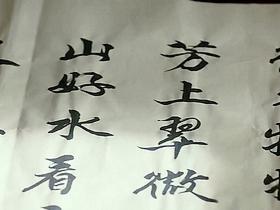 芳上翠微
山好水看